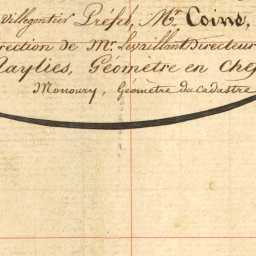 Villegontier Préfet, Mr. Coins,
rection de Mr. Levaillant Directeur
Naylies, Géomètre en Chef
Monoury, Géomètre du Cadastre